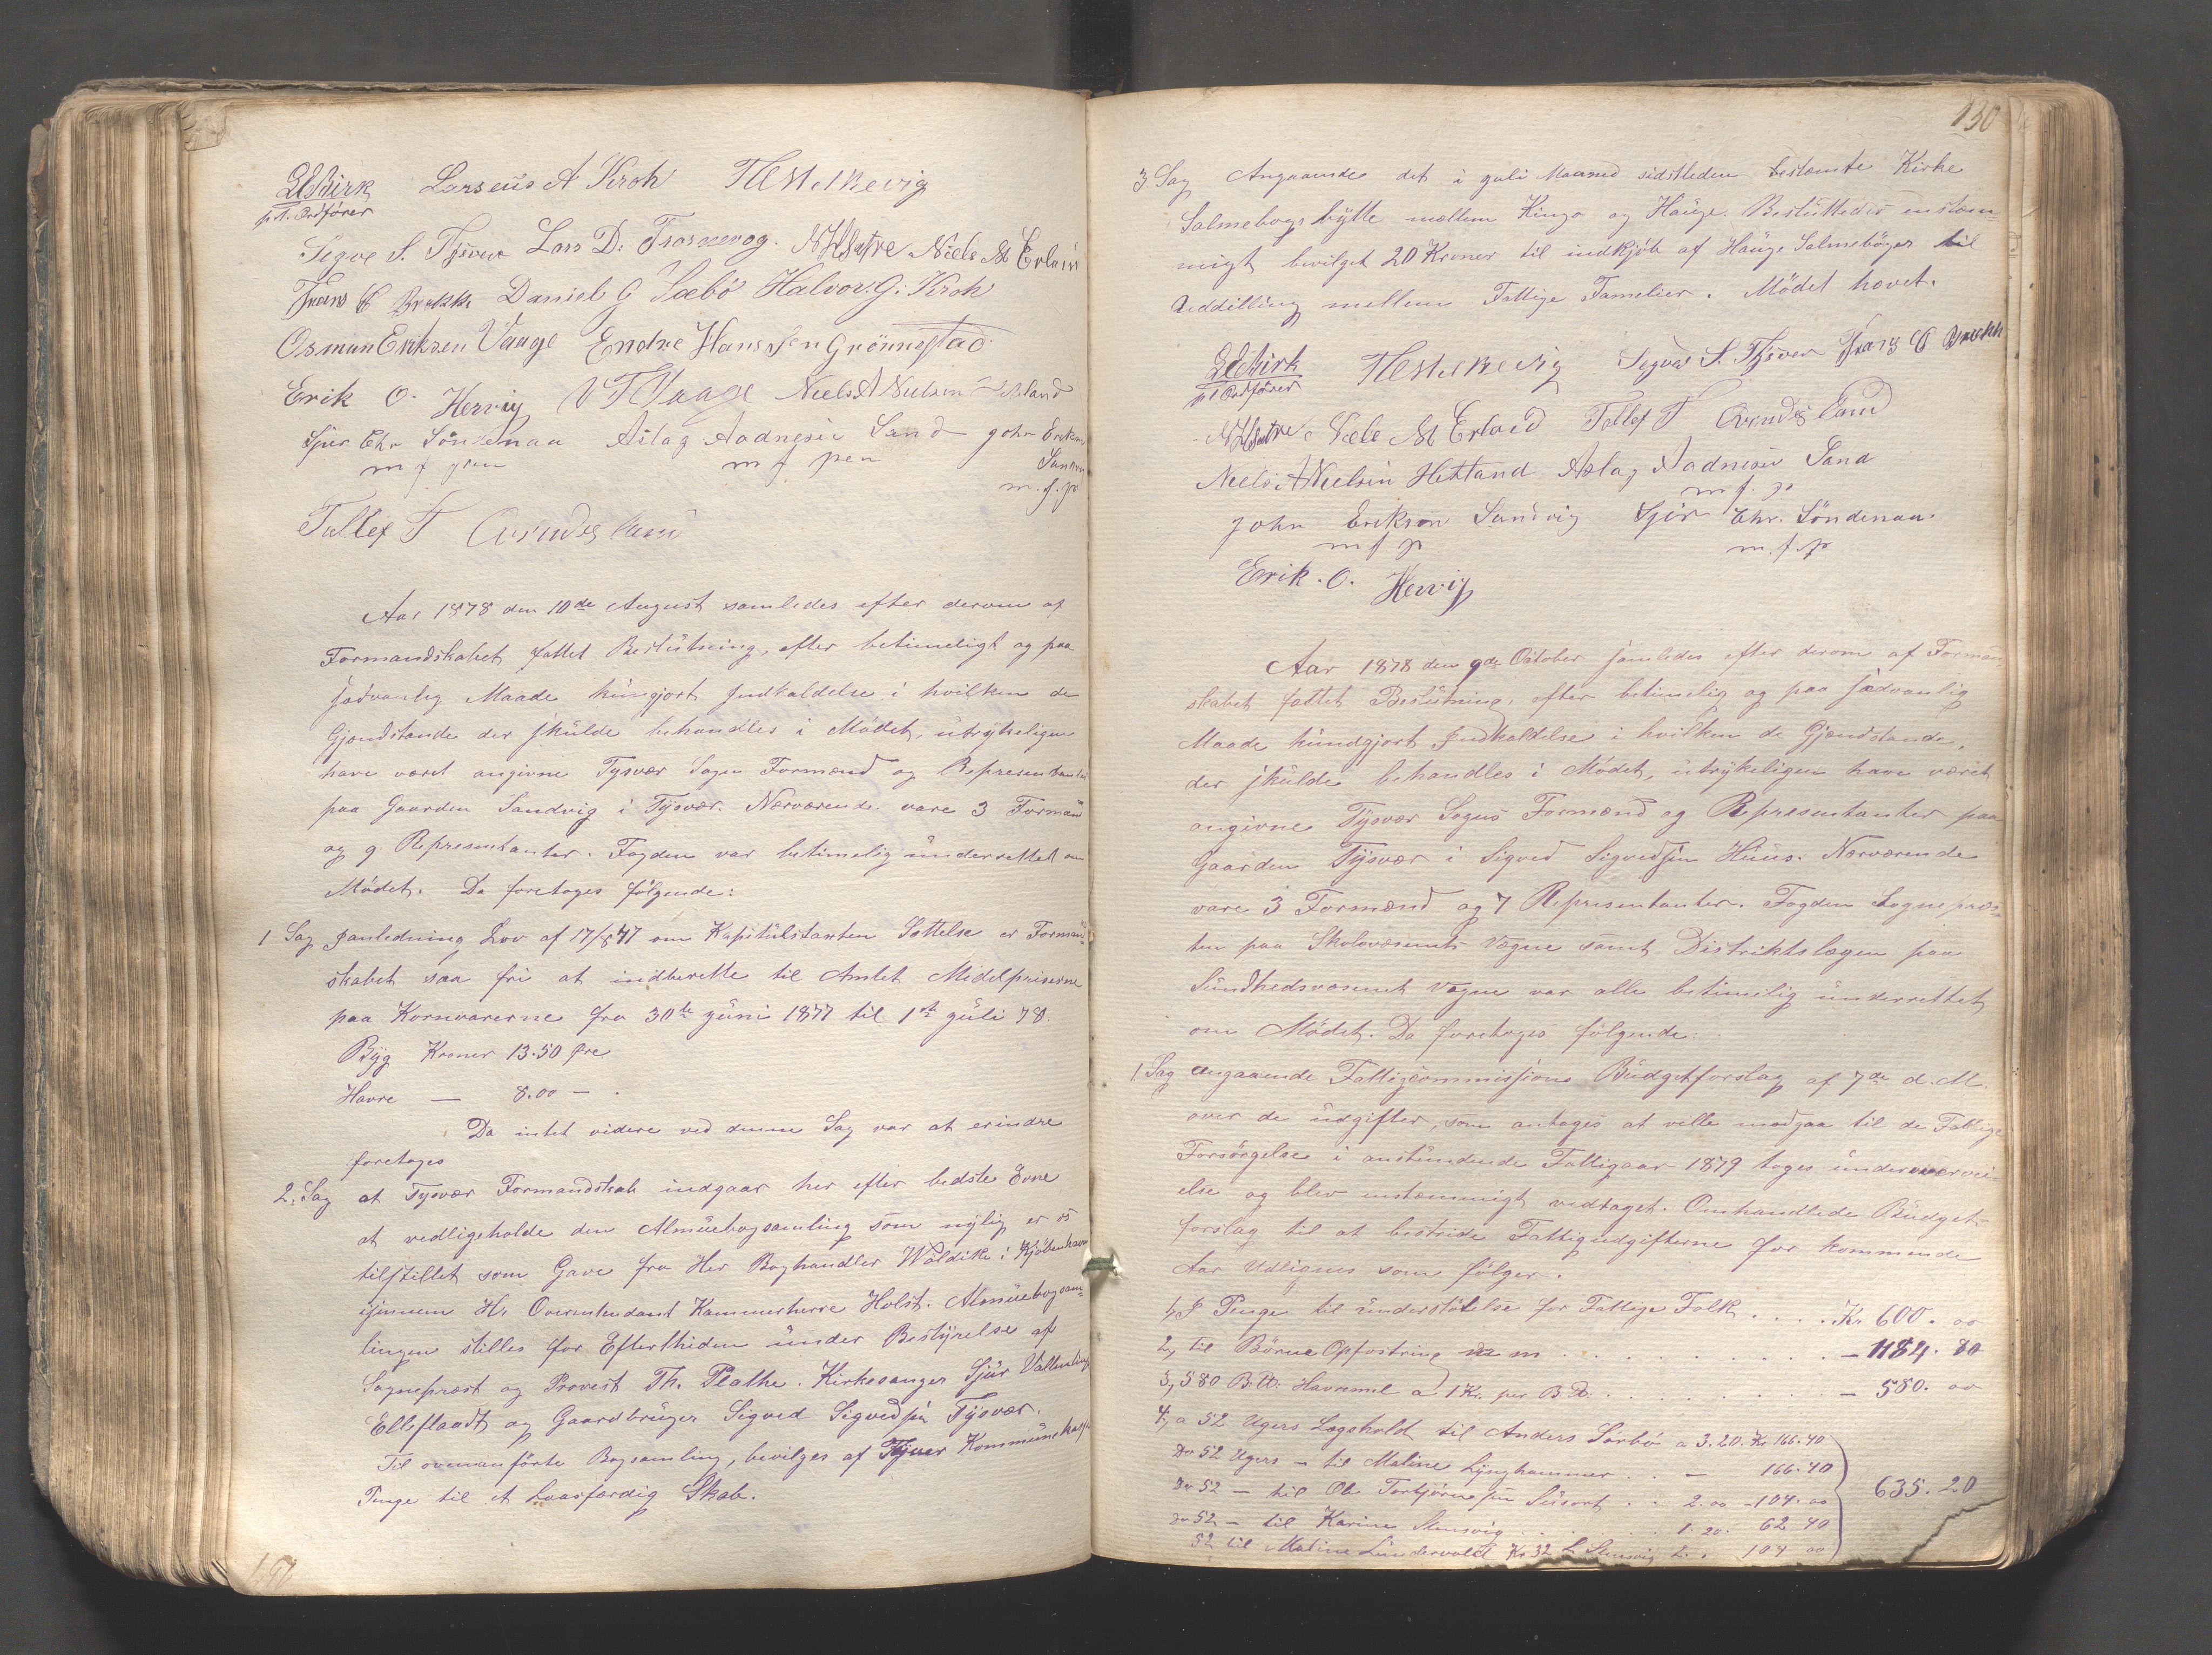 Larseus A Kroh
p.t. Ordfører
Lars D.
Daniel G Sæbø Halvor. G. Kroh
Osmun Eriksen Vaage Endre Hanssen Grønnestad
Erik O. Hervig Niels A Nielsen
Aslag Aadnesen Sand John Erikson
m f pen m f pen m. f. p
Aar 1878 den 10de August samledes efter derom af
Formandskabet fattet Beslutning, efter betimeligt og paa
sædvanlig Maade kungjort Indkaldelse i hvilken de
Gjenstande der skulde behandles i Mødet, utrykeligen
have været angivne Tysvær Sogns Formænd og Representanter
paa Gaarden Sandvig i Tysvær. Nærværende vare 3 Formænd
og 9 Representanter. Fogden var betimelig underrettet om
Mødet. Da foretoges følgende:
1 Sag Janledning Lov af 17/8 47 om Kapitulstaxten Sættelse er Formand
skabet saa fri at indberette til Amtet Midelpriserne
paa Kornvarerne fra 30te Juni 1877 til 1ste Juli 78.
Byg Kroner 13.50 Øre
Havre — 8.00 — .
Da intet videre ved denne Sag var at erindre
foretoges
2. Sag at Tysvær Formandskab indgaar her efter bedste Evne
at vedligeholde den Almuebogsamling som nylig er os
tilstillet som Gave fra Her Boghandler Wøldike i Kjøbenhavn
igjennem Hr Overintendant Kammerherre Holst. Almuebogsam-
lingen stilles for Eftertiden under Bestyrelse af
Sogneprest og Provest Th. Plathe. Kirkesanger Sjur
og Gaardbruger Sigved Sigvedsen Tysvær.
Til ovenanførte Bogsamling, bevilges af Tysver Kommunekasse
Penge til et Laasfærdig Skab.
130
3 Sag Angaaende det i Juli Maaned sidstleden bestemte Kirke
Salmebogs bytte mellem Kingo og Hauge. Besluttedes enstem
migt bevilget 20 Kroner til indkjøb af Hauge Salmebøger til
Uddilling mellem Fattige Familier. Mødet hævet.
p t Ordfører
Niels A Nielsen Hetland Aslag Aadnesen Sand
m f. p
John Erikson Sandvig Sjur Chr. Søndenaa
m f p m. f. p
Erik. O. Hervig
Aar 1878 den 9de October samledes efter derom af Formand
skabet fattet Beslutning, efter betimelig og paa sædvanlig
Maade kundgjort Indkaldelse i hvilken de Gjenstande,
der skulde behandles i Mødet, utrykeligen have været
angivne Tysvær Sogns Formænd og Representanter paa
Gaarden Tysvær i Sigved Sigvedsen Huus. Nærværende
vare 3 Formænd og 7 Representanter. Fogden Sognepræs-
ten paa Skolevæsenets Vegne samt Distriktslægen paa
Sundhedsvæsenet Vegne var alle betimelig underrettet
om Mødet. Da foretoges følgende:
1. Sag angaaende Fattigcommissions Budgetforslag af 7de d. M.
over de udgifter, som antages at ville medgaa til de Fattige
Forsørgelse i anstundende Fattigaar 1879 toges under
else og blev enstemmigt vedtaget. Omhandlede Budget-
forslag til at bestride Fattigudgifterne for kommende
Aar Udlignes som følger.
1, I Penge til understøtelse for Fattige Folk . . . . Kr. 600. 00
2, til Børne Opfostring m m . . . . — 1184. 80
3, 580 B. Havremel a 1 Kr. per B. . . . . — 580. 00
4, a 52 Ugers Lægehold til Anders Sørbø a 3.20. Kr 166.40
Do 52 Ugers — til Maline Lynghammer . . — 166.40
635.20
Do 52 — til Ole Torbjørnsen . . 2.00 — 104.00
Do 52 — til Karine Stensvig . . . 1.20. 62 40
52 til Maline 104 00